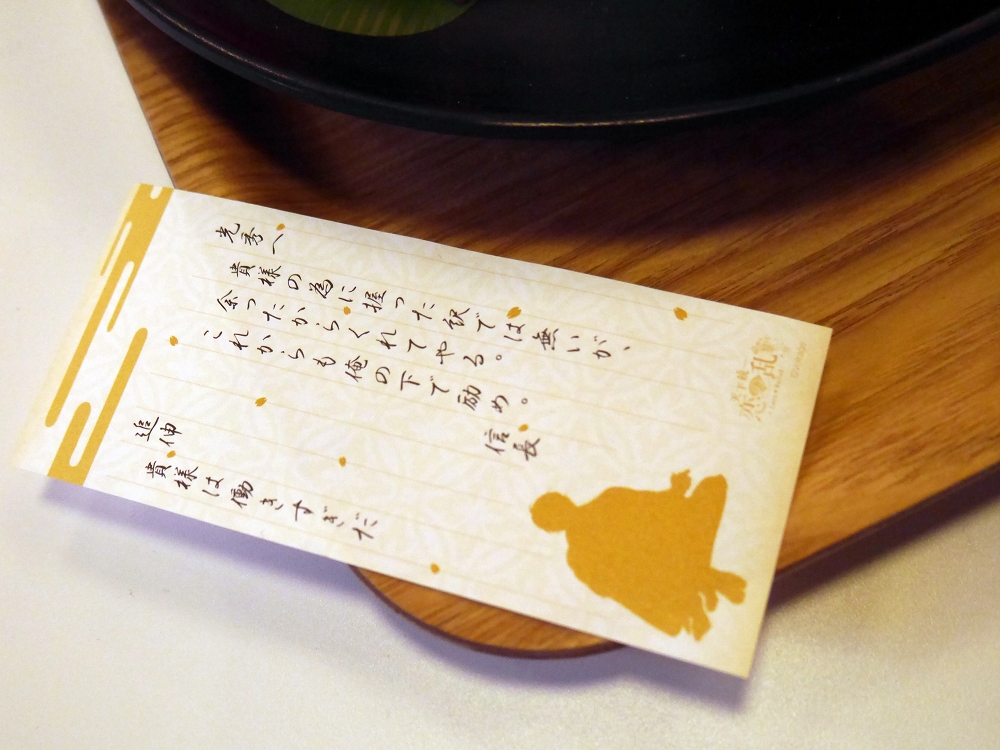 光秀へ
貴様の為に握った訳では無いが、
余ったからくれてやる。
これからも俺の下で励め。
信長
追伸
貴様は働きすぎだ
天下統一
恋の乱